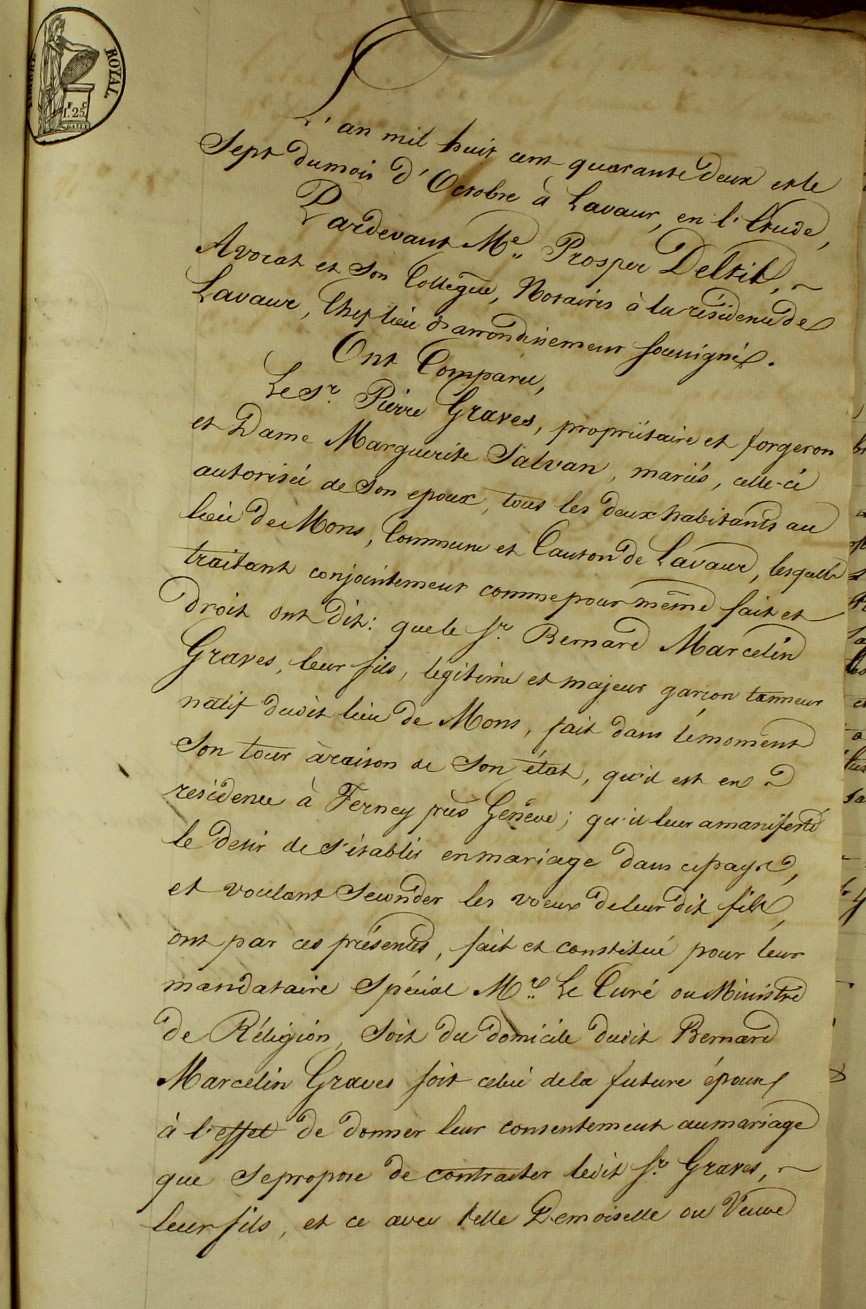 ROYAL
1F. 25C
L'an mil huit cent quarante deux et le
Sept dumois d'Octobre à Lavaur, en l'Etude,
Pardevant Me. Prosper Deltil,
Avocat et son Collegue, Notaires à la résidence de
Lavaur, Chef lieu d'arrondissement soussignés.
Ont Comparu,
Le Sr. Pierre Graves, propriétaire et forgeron
et Dame Marguerite Salvan, mariés, celle-ci
autorisée de son epoux, tous les deux habitants au
lieu de Mons, Commune et Canton de Lavaur, lesquels
traitant conjointement comme pour même fait et
Droit ont dit: que le Sr. Bernard Marcelin
Graves, leur fils, légitime et majeur garçon tanneur
natif dudit lieu de Mons, fait dans le moment
son tour à raison de son état, qu'il est en
residence à Ferney près Genève; qu'il leur a manifesté
le desir de s'établir en mariage dans ce pays,
et voulant seconder les voeux de leur dit fils,
ont par ces présentes, fait et constitué pour leur
mandataire Spécial Mr. Le Curé ou Ministre
de Réligion, soit du domicile dudit Bernard
Marcelin Graves soit celui de la future épouse
à l'effet de donner leur consentement au mariage
que se propose de contracter ledit Sr. Graves,
leur fils, et ce avec telle Demoiselle ou Veuve